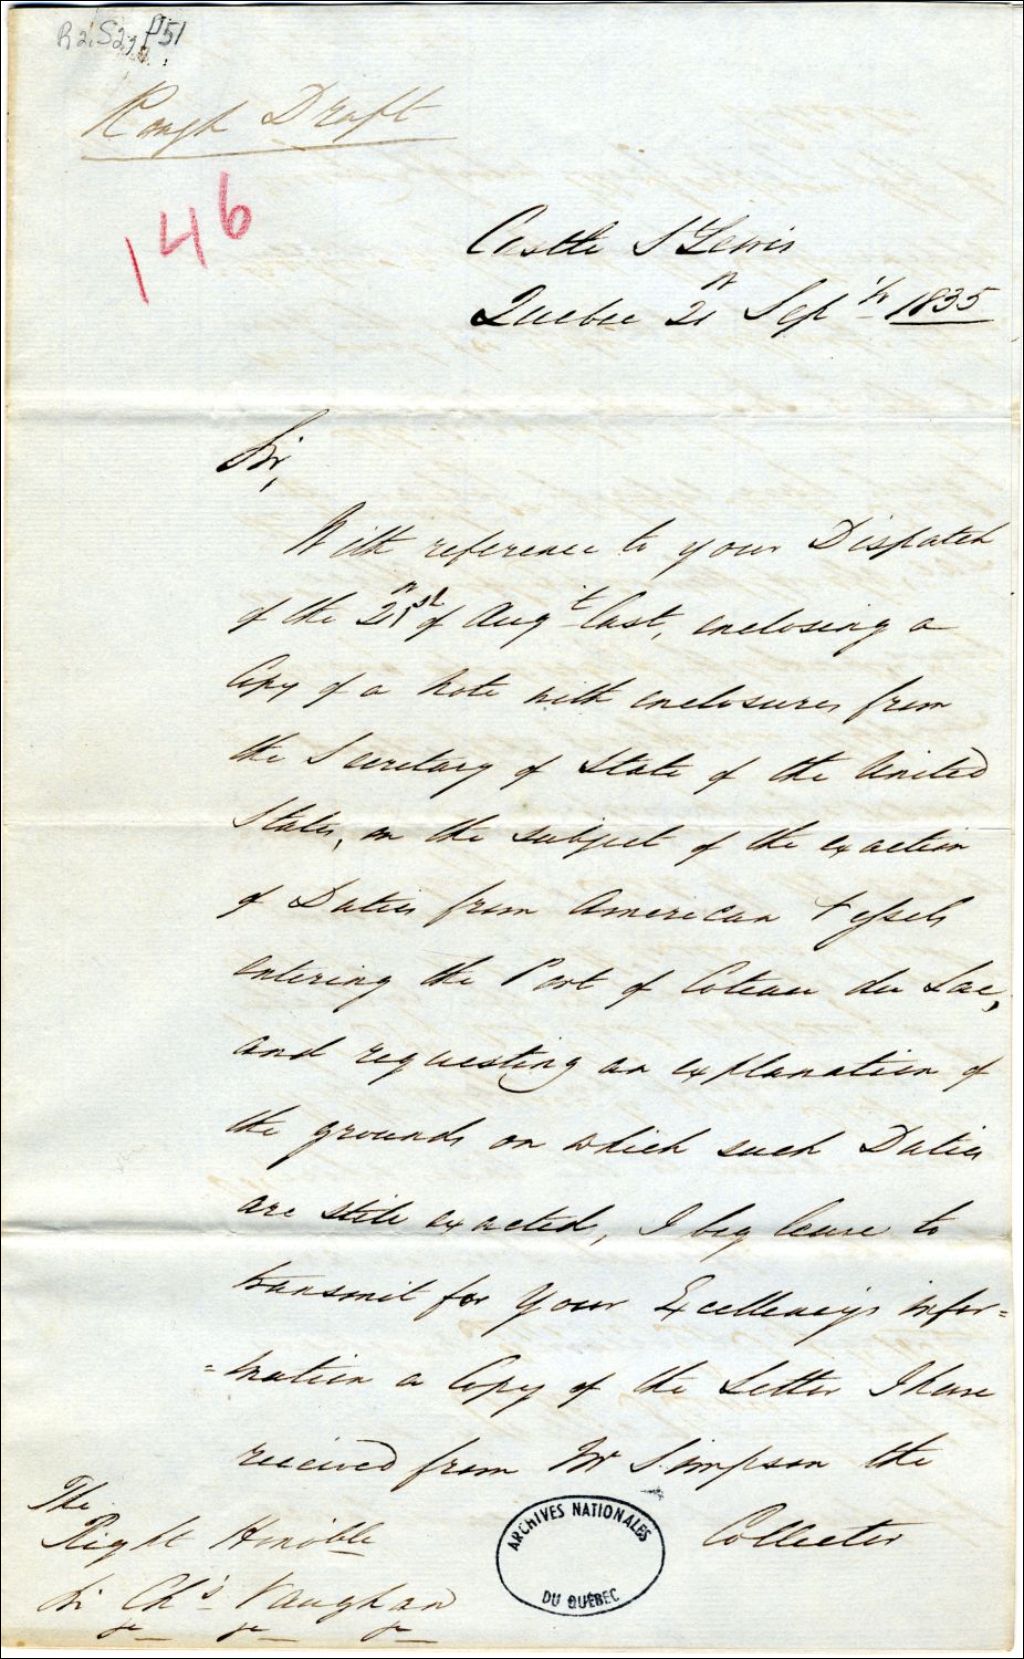 P51
Rough Draft
146
Castle St Lewis
Quebec 21st Septr 1835
Sir,
With reference to your Dispatch
of the 21st of Augt last, enclosing a
Copy of a Note with enclosures from
the Secretary of State of the United
States, on the subject of the exaction
of Duties from American Vessels
entering the Port of Coteau du Lac,
and requesting an explanation of
the grounds on which such Duties
are still exacted, I beg leave to
transmit for Your Excellency's infor=
=mation a Copy of the Letter I have
received from Mr Simpson the
Collector
The
Right Honoble
Sir Chs Vaughan
ARCHIVES NATIONALES
DU QUÉBEC